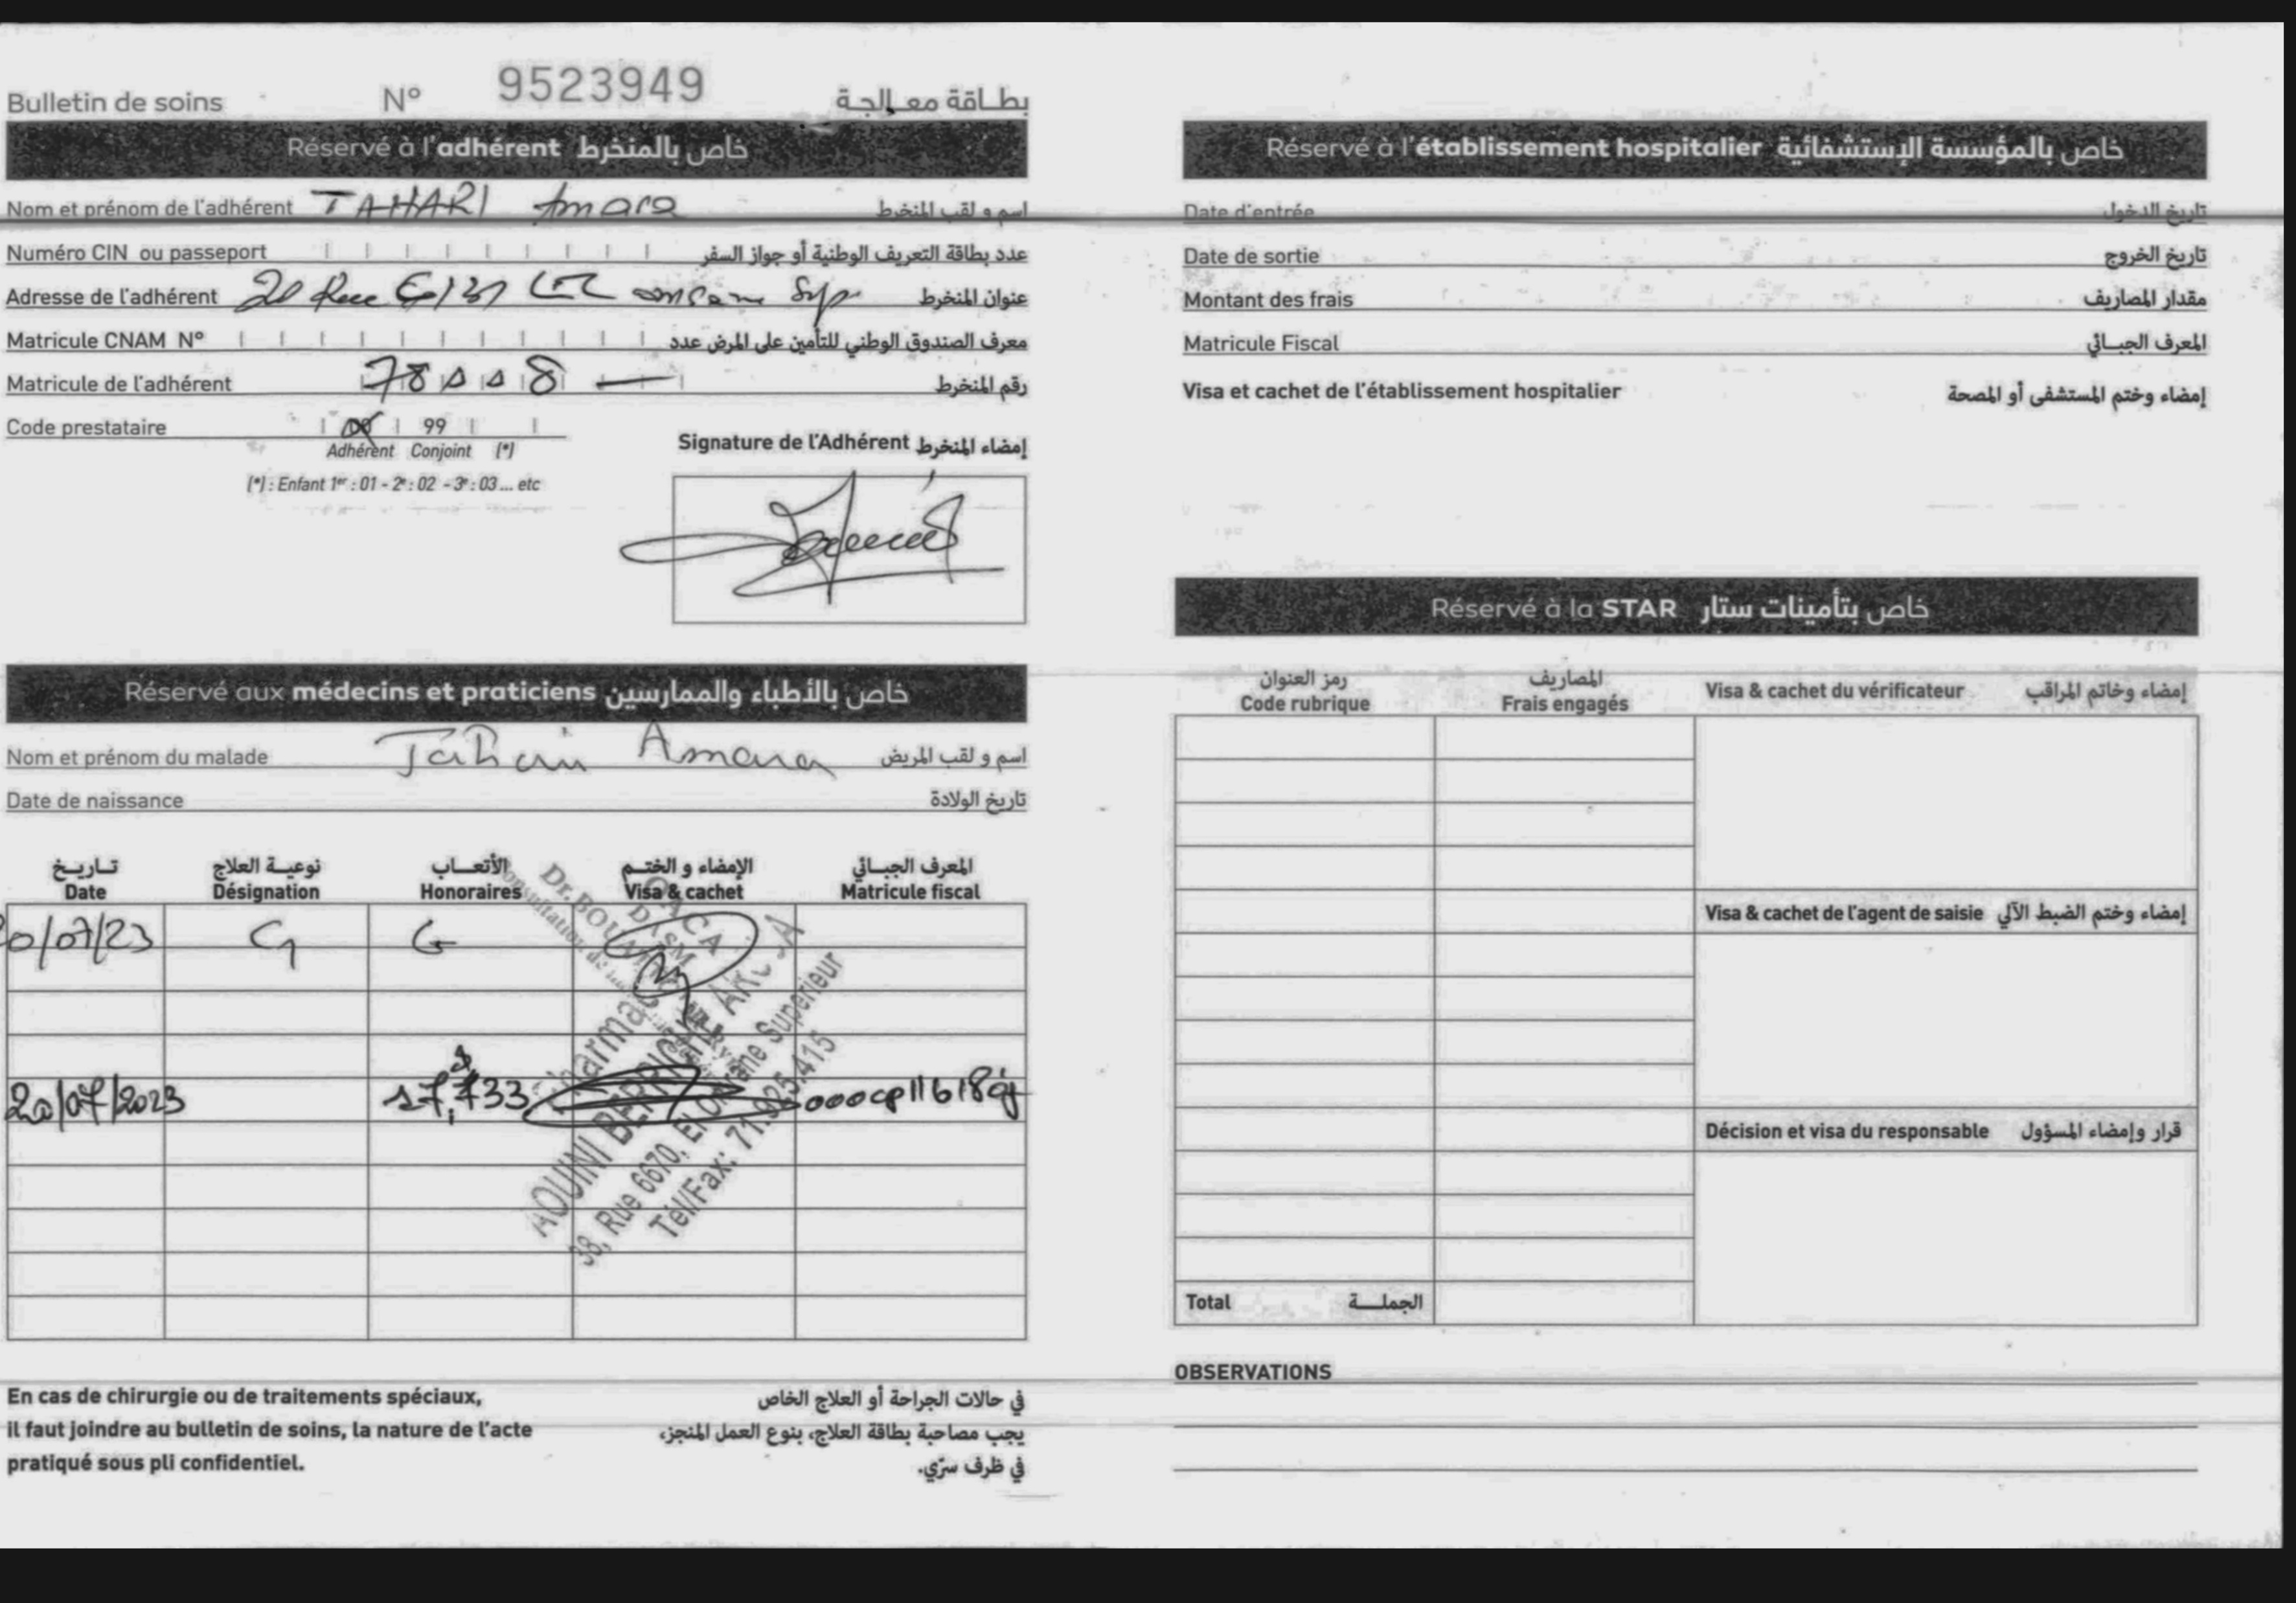 Bulletin de soins N° 9523949 بطاقة معالجة
Réservé à l'adhérent خاص بالمنخرط
Nom et prénom de l'adhérent TAHARI Amara اسم و لقب المنخرط
Numéro CIN ou passeport عدد بطاقة التعريف الوطنية أو جواز السفر
Adresse de l'adhérent 20 Rue عنوان المنخرط
Matricule CNAM N° معرف الصندوق الوطني للتأمين على المرض عدد
Matricule de l'adhérent رقم المنخرط
Code prestataire 99
Adhérent Conjoint (*)
(*) : Enfant 1er : 01 - 2e : 02 - 3e : 03 ... etc
Signature de l'Adhérent إمضاء المنخرط
Réservé aux médecins et praticiens خاص بالأطباء والممارسين
Nom et prénom du malade Tahari Amara اسم و لقب المريض
Date de naissance تاريخ الولادة
تاريخ نوعية العلاج الأتعاب الإمضاء و الختم المعرف الجبائي
Date Désignation Honoraires Visa & cachet Matricule fiscal
20/07/23
20/07/2023 17,733
CACA
DASM
AOUINI BERRICHE
38, Rue 6670, El Omrane Superieur
Tél/Fax: 71.925.415
En cas de chirurgie ou de traitements spéciaux,
il faut joindre au bulletin de soins, la nature de l'acte
pratiqué sous pli confidentiel.
في حالات الجراحة أو العلاج الخاص
يجب مصاحبة بطاقة العلاج، بنوع العمل المنجز،
في ظرف سرّي.
Réservé à l'établissement hospitalier خاص بالمؤسسة الإستشفائية
Date d'entrée تاريخ الدخول
Date de sortie تاريخ الخروج
Montant des frais مقدار المصاريف
Matricule Fiscal المعرف الجبائي
Visa et cachet de l'établissement hospitalier إمضاء وختم المستشفى أو المصحة
Réservé à la STAR خاص بتأمينات ستار
رمز العنوان المصاريف
Code rubrique Frais engagés Visa & cachet du vérificateur إمضاء وخاتم المراقب
Visa & cachet de l'agent de saisie إمضاء وختم الضبط الآلي
Décision et visa du responsable قرار وإمضاء المسؤول
Total الجملة
OBSERVATIONS